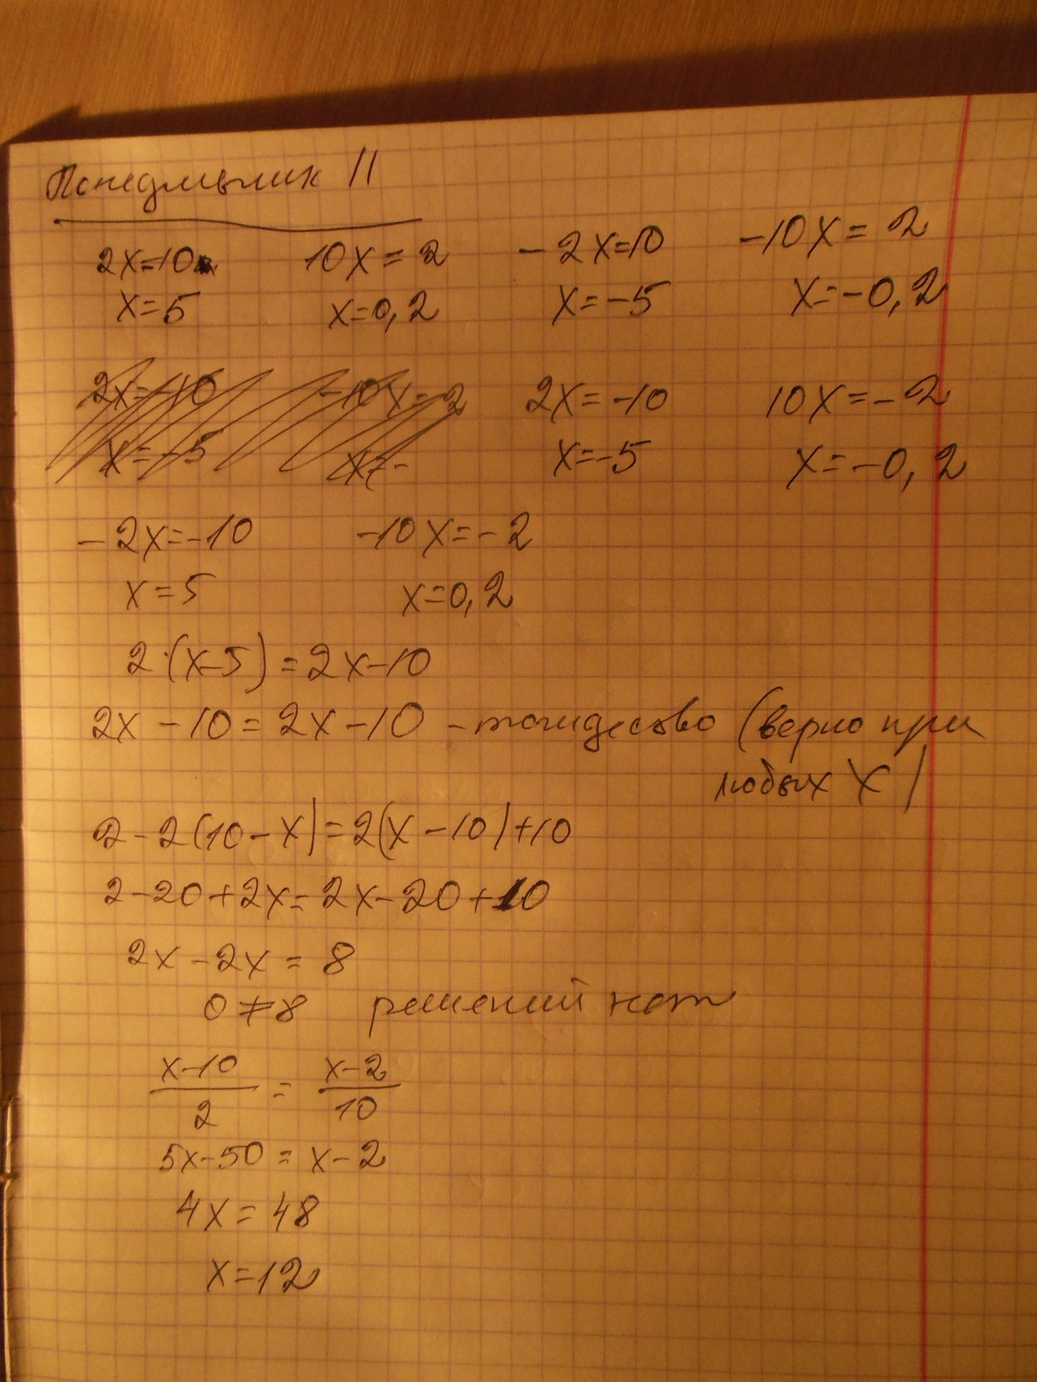 Понедельник 11
2x=10 10x=2 -2x=10 -10x=2
x=5 x=0,2 x=-5 x=-0,2
2x=-10 -10x=2 2x=-10 10x=-2
x=-5 x=- x=-5 x=-0,2
-2x=-10 -10x=-2
x=5 x=0,2
2·(x-5)=2x-10
2x-10=2x-10 - тождесво (верно при
любых x)
2-2(10-x)=2(x-10)+10
2-20+2x=2x-20+10
2x-2x=8
0≠8 решений нет
x-10 = x-2
2 10
5x-50=x-2
4x=48
x=12